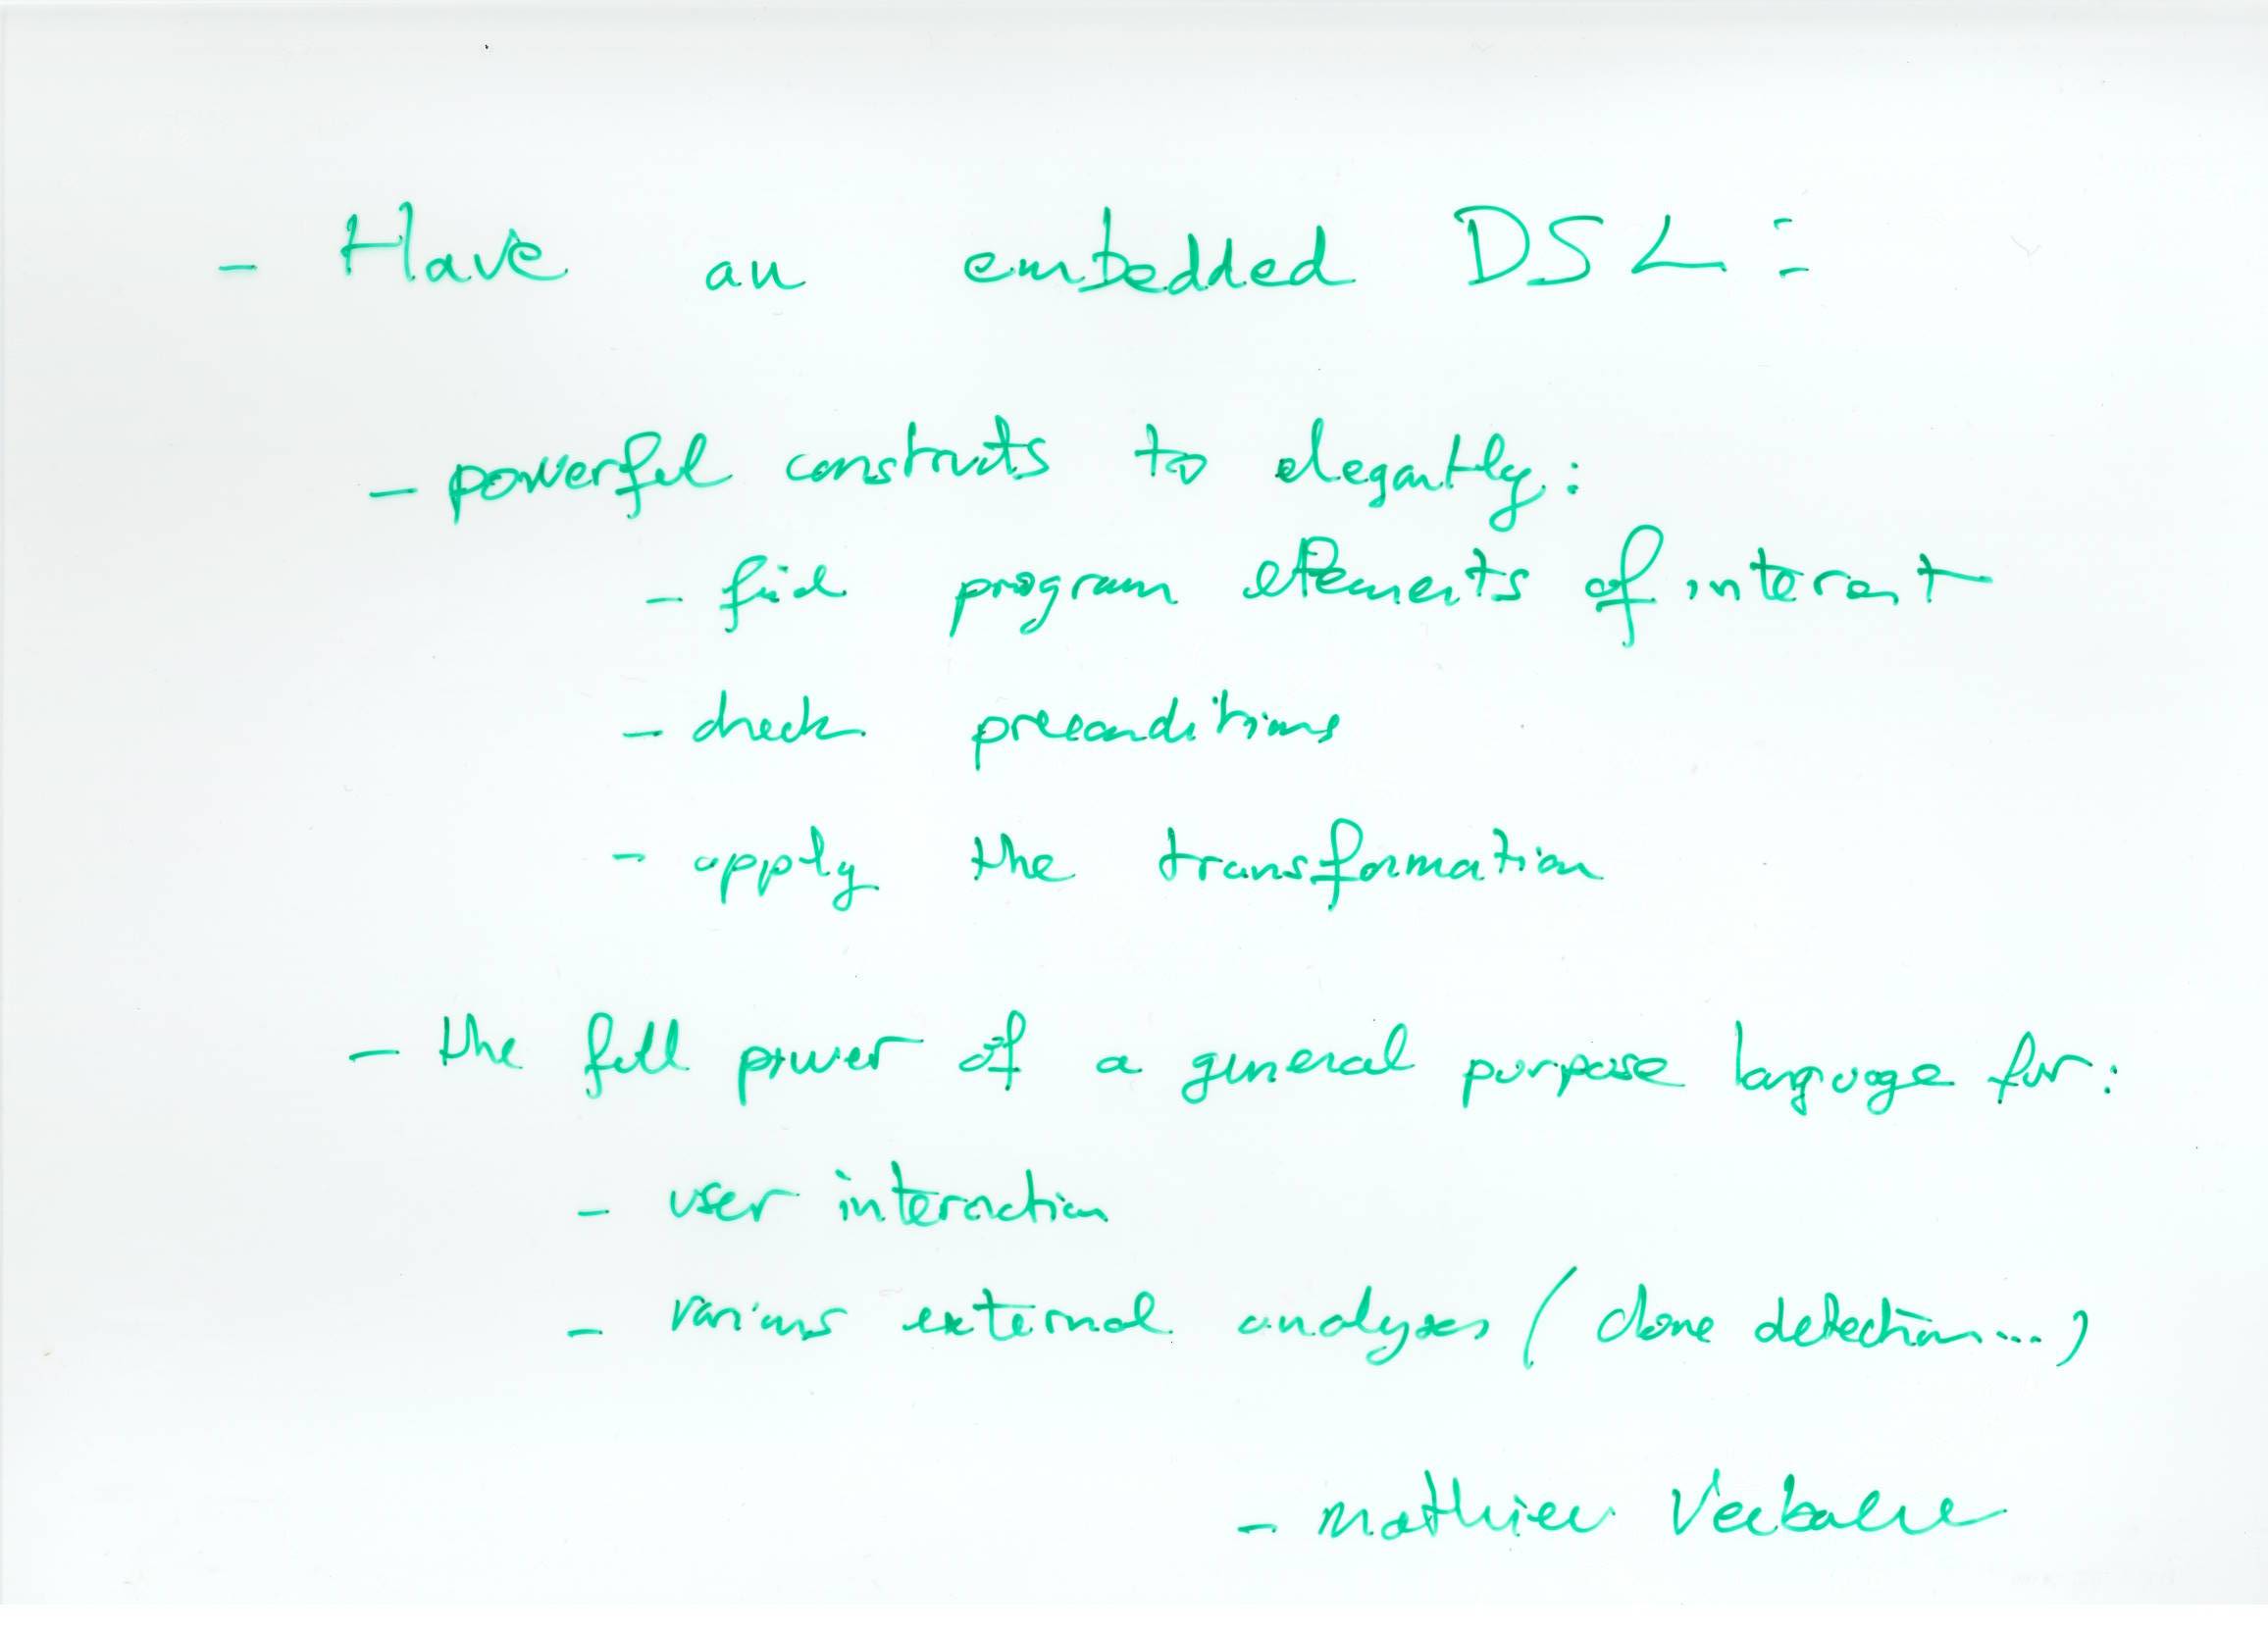 - Have an embedded DSL :
- powerful constructs to elegantly:
- find program elements of interest
- check preconditions
- apply the transformation
- the full power of a general purpose language for:
- user interaction
- various external analyses (clone detection...)
- Mathieu Verbaere